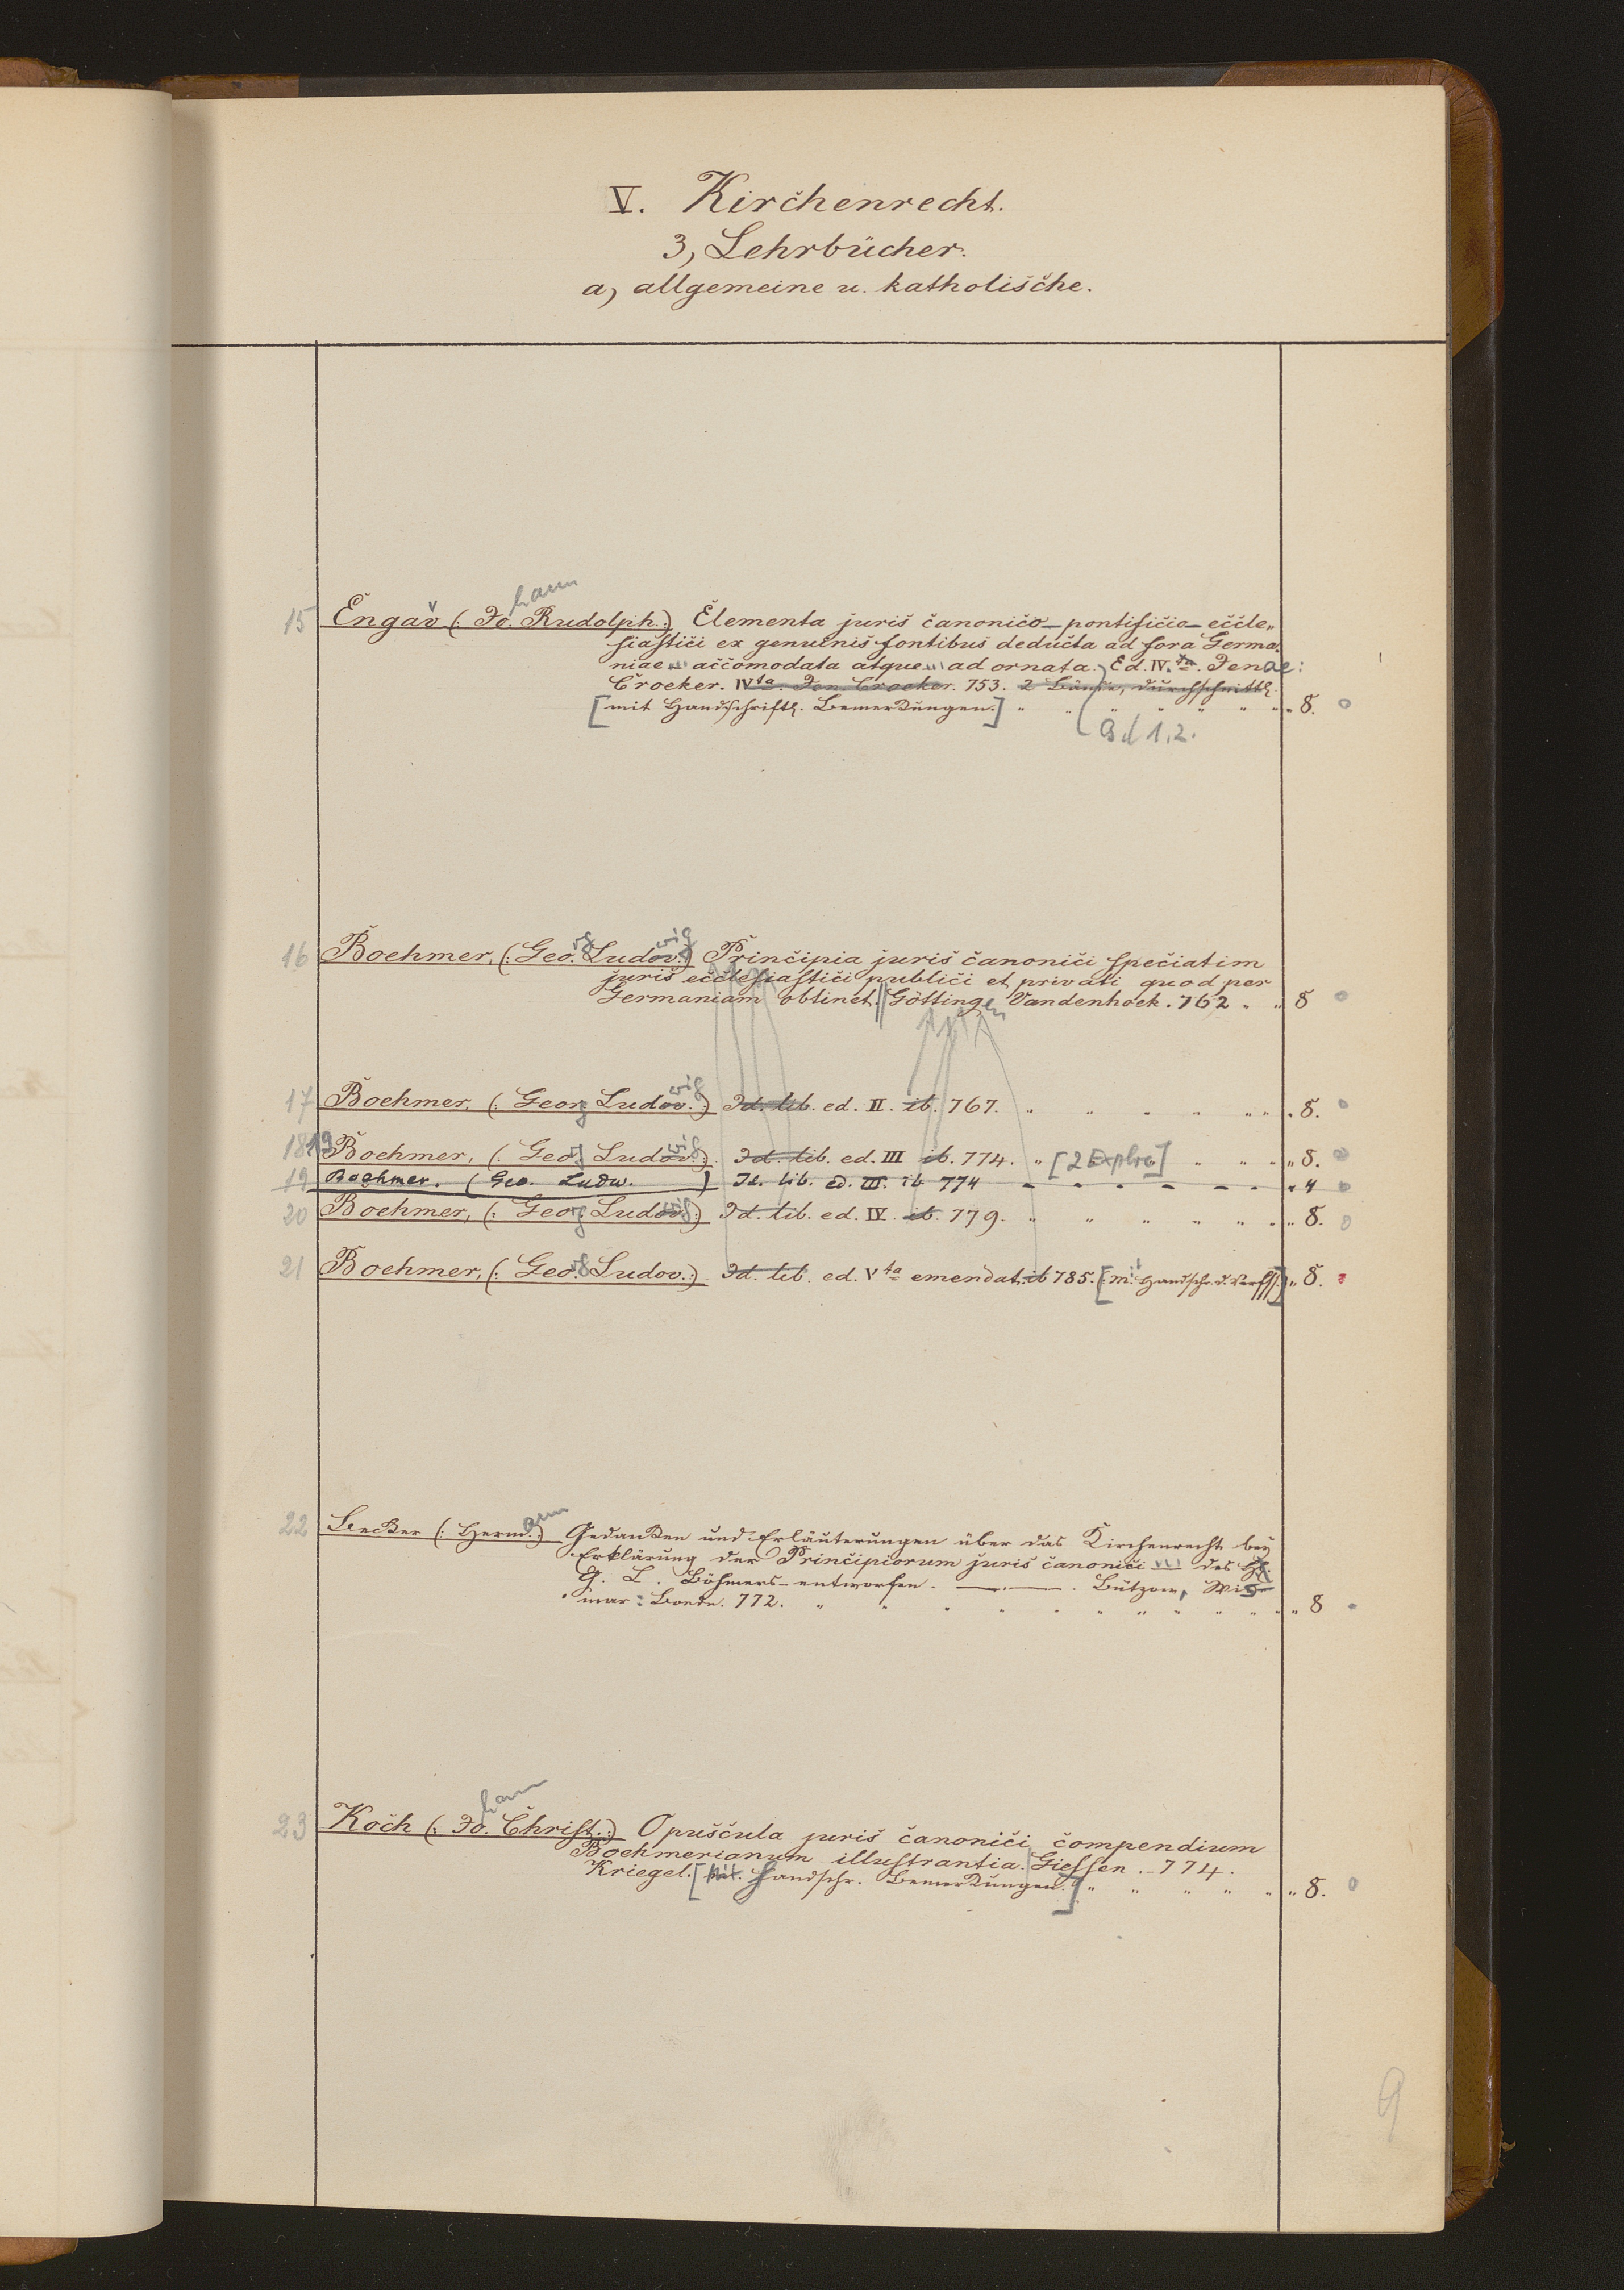 V. Kirchenrecht.
3, Lehrbücher.
a, allgemeine u. katholische.
hann
15 Engav (: Jo. Rudolph.) Elementa juris canonico-pontificio-eccle„
siastici ex genuinis fontibus deducta ad fora Germa„
niae accomodata atque adornata. Ed. IV.ta. Jenae:
Croeker. IVta. Jen. Croeker. 753. 2 Bände, durchschnittl.
[mit Handschriftl. Bemerkungen.] " " " " " " " 8. o
Bd 1.2.
rg wig
16 Boehmer, (: Geo. Ludov.:) Principia juris canonici speciatim
juris ecclesiastici publici et privati quod per
Germaniam obtinet. Götting en Vandenhoek. 762 " " 8 o
wig
17 Boehmer, (: Georg Ludov.:) Id. lib. ed. II. ib. 767. " " " " " " " 8. o
18 19 Boehmer, (: Georg Ludovwig:) Id. lib. ed. III ib. 774. " [2 Explre] " " " " 8. o
19 Boehmer. (Geo. Ludw. ) Id. lib. ed. III. ib 774 - - - - - - " 4 o
20 Boehmer, (: Georg Ludovwig:) Id. lib. ed. IV. ib. 779. " " " " " " " 8. o
21 Boehmer, (: Georg Ludov.:) Id. lib. ed. Vta emendat. ib 785. [mit Handschr. d. Verfss.] " 8.
ann
22 Becker (: Herm.:) Gedanken und Erläuterungen über das Kirchenrecht bey
Erklärung der Principiorum juris canonici des H.
G. L. Böhmers entworfen. —.—. Bützow, Wis-
mar: Boedn. 772. " " " " " " " " " " 8
hann
23 Koch (: Jo. Christ.:) Opuscula juris canonici compendium
Boehmerianum illustrantia. Giessen. 774.
Kriegel. [Mit. Handschr. Bemerkungen.] " " " " " " 8. o
9